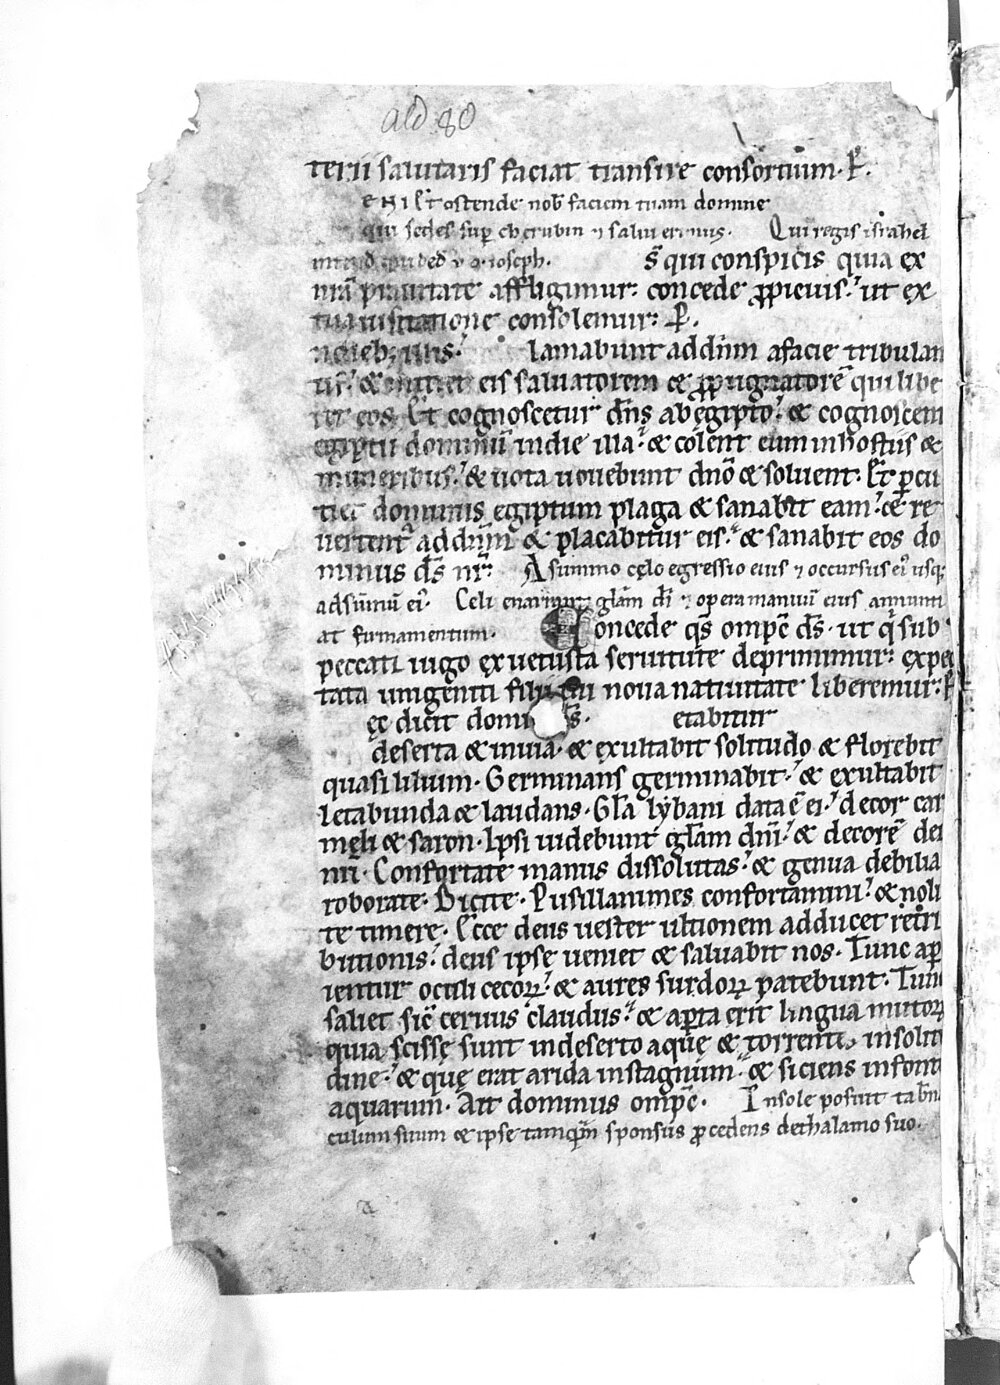 ald 80
terii salutaris faciat transire consortium. P̄.
eni et ostende nob̄ faciem tuam domine
qui sedes sup̄ cherubin ⁊ salui erimus. Qui regis israhel
ioseph. D̄s qui conspicis quia ex
nr̄a prauitate affligimur: concede ꝓpicius.' ut ex
tua uisitatione consolemur: P̄.
In dieb; illis.' lamabunt ad dn̄m a facie tribulan
tis.' & mittet eis saluatorem & ꝓpugnatorē qui libe
ret eos Et cognoscetur dn̄s ab egipto.' & cognoscent
egiptii dominū in die illa.' & colent eum in hostiis &
muneribus.' & uota uouebunt dn̄o & soluent. Et ꝑcu
tiet dominus egiptum plaga & sanabit eam.' & re
uertent᷑ ad dn̄m & placabitur eis.' & sanabit eos do
minus ds̄ nr̄. A summo cęlo egressio eius ⁊ occursus ei᷑ usq;
ad sūmū ei᷑. Celi enarrant glām dī ⁊ opera manuū eius annunti
at firmamentum. Concede qs̄ omp̄c ds̄. ut q̄ sub
peccati iugo ex uetusta seruitute deprimimur: expec
tata unigeniti filii tui noua natiuitate liberemur: P
ęc dicit domin s̄. etabitur
deserta & inuia. & exultabit solitudo & florebit
quasi lilium. Germinans germinabit.' & exultabit
letabunda & laudans. Glā lybani data ē ei.' decor car
meli & saron. Ipsi uidebunt glām dn̄i.' & decorē dei
nri. Confortate manus dissolutas.' & genua debilia
roborate. Dicite. Pusillanimes confortamini.' & noli
te timere. Ecce deus uester ultionem adducet retri
butionis.' deus ipse ueniet & saluabit nos. Tunc aꝑ
ientur oculi cecoꝝ.' & aures surdoꝝ patebunt. Tunc
saliet sic̄ ceruus claudus.' & aꝑta erit lingua mutoꝝ
quia scissę sunt in deserto aquę & torrentes in solitu
dine.' & quę erat arida in stagnum.' & siciens in fontes
aquarum. Ait dominus omp̄c. In sole posuit tab̄na
culum suum & ipse tamqm̄ sponsus ꝓcedens de thalamo suo.